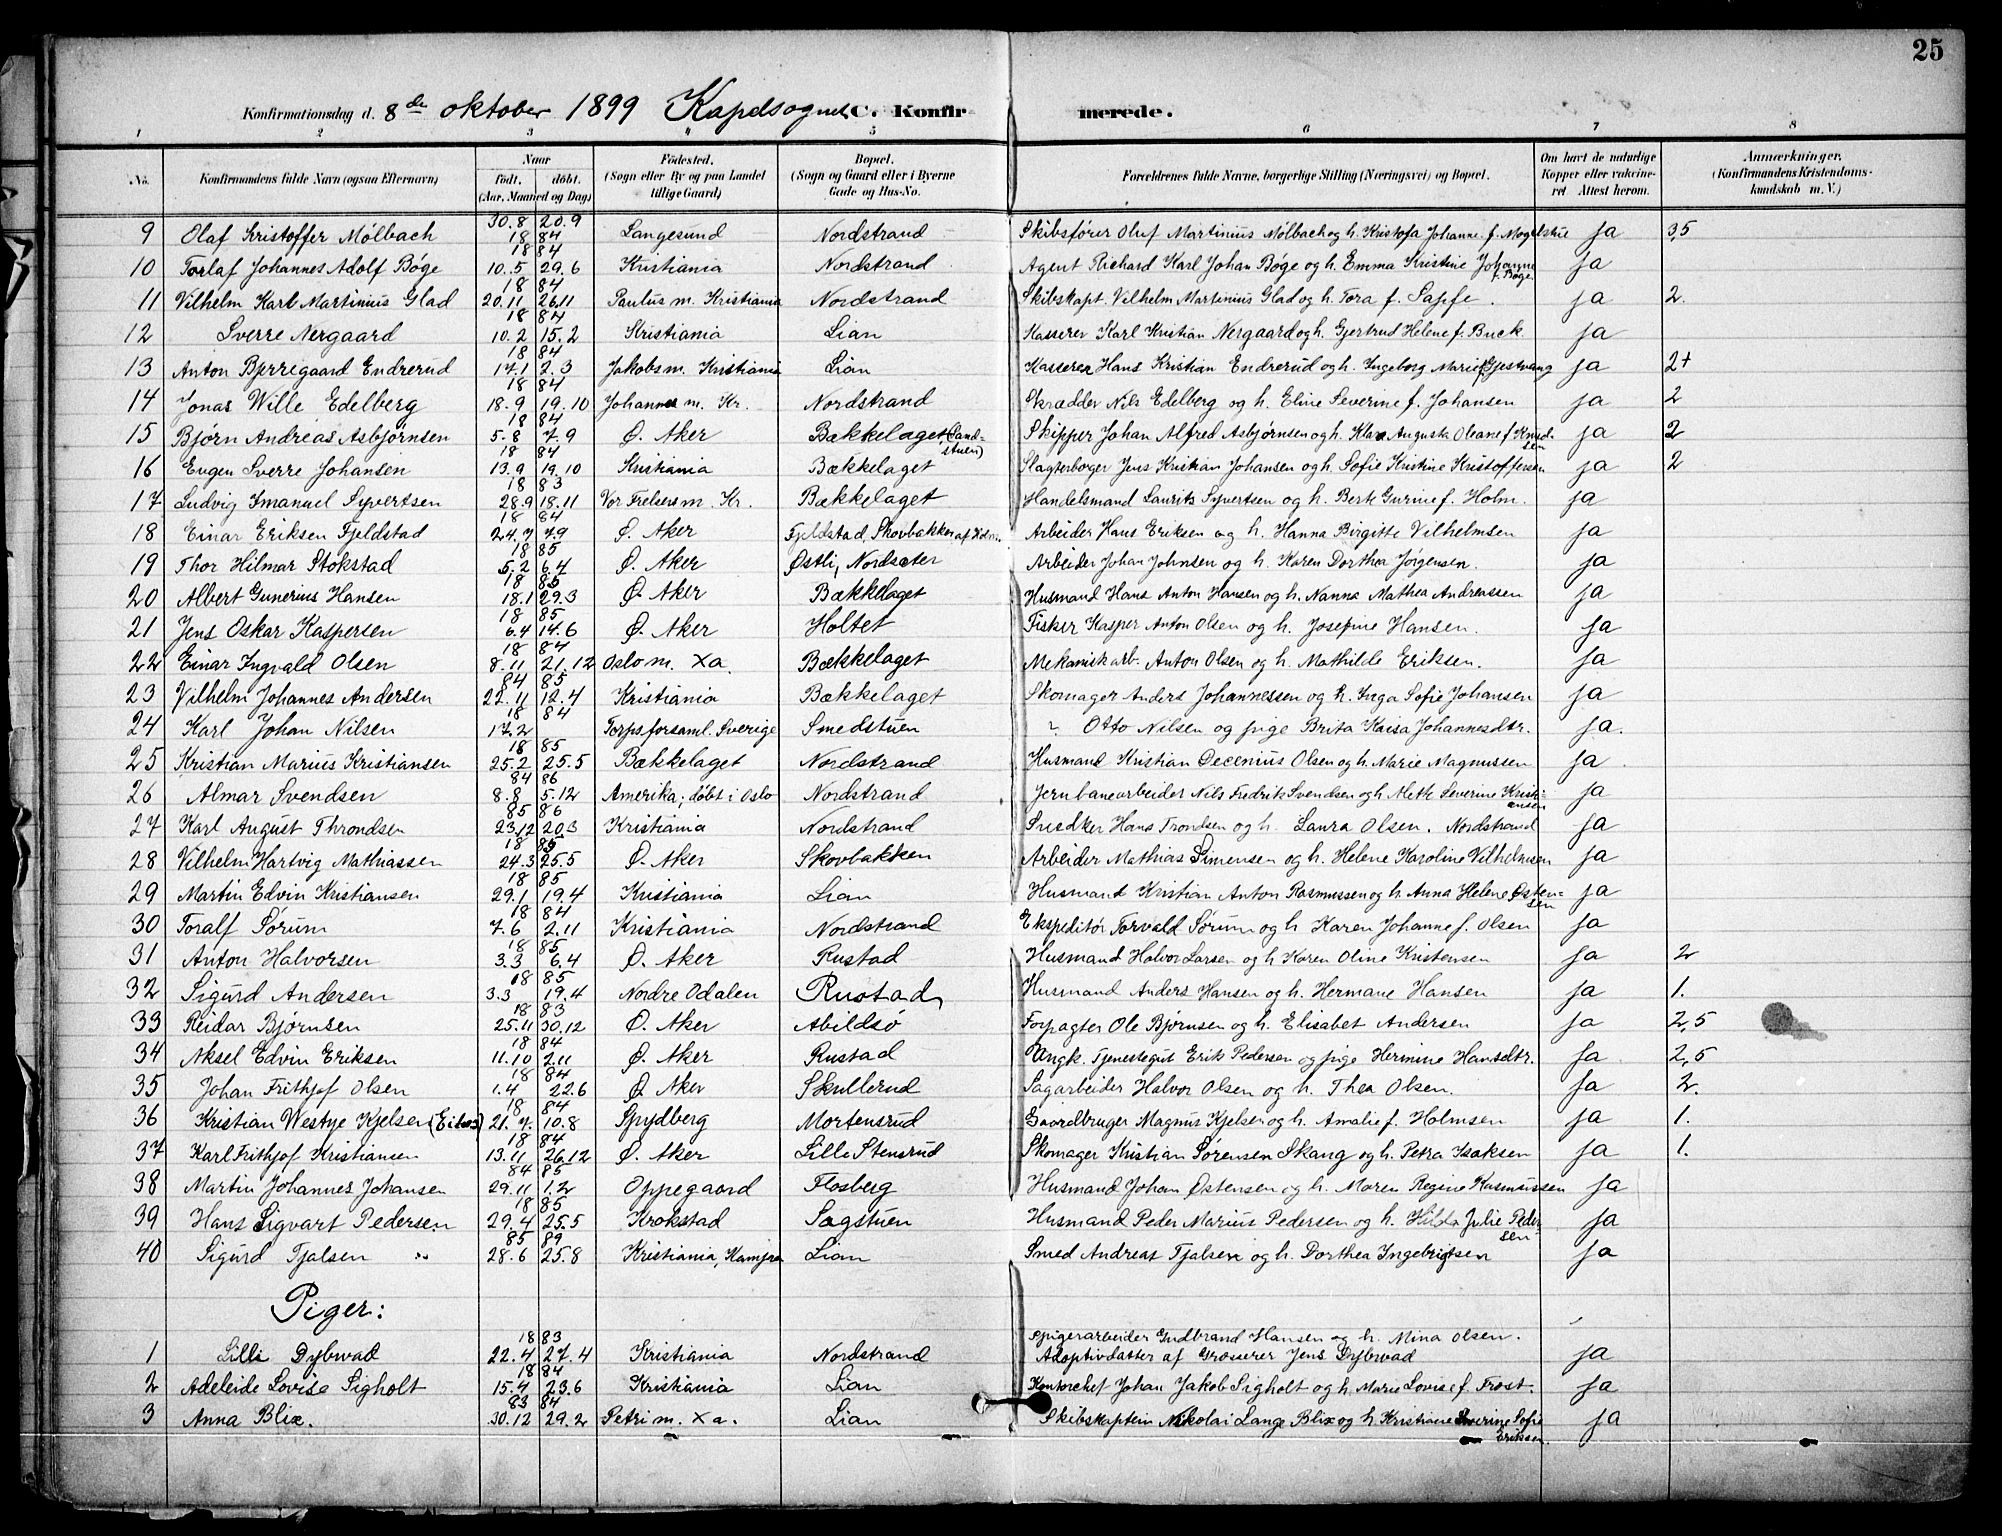 25
Konfirmationsdag d. 8de oktober 1899 Kapelsognet C. Konfirmerede.
1 2 3 4 5 6 7 8
No. Konfirmandens fulde Navn (ogsaa Efternavn) Naar født. døbt. (Aar, Maaned og Dag) Fødested. (Sogn eller By og paa Landet tillige Gaard) Bopæl. (Sogn og Gaard eller i Byerne Gade og Hus-No. Forældrenes fulde Navne, borgerlige Stilling (Næringsvei) og Bopæl. Om havt de naturlige Kopper eller vakcineret Attest herom. Anmærkninger. (Konfirmandens Kristendomskundskab m. V.)
9 Olaf Kristoffer Mölbach 30.8 20.9 18 84 Langesund Nordstrand Skibsförer Oluf Martinius Mölbach og h. Kristofa Johanne f. Mogelstue ja 3,5
10 Torlaf Johannes Adolf Böge 18 84 10.5 29.6 Kristiania Nordstrand Agent Richard Karl Johan Böge og h. Emma Kristine Johanne f. Böge ja
11 Vilhelm Karl Martinius Glad 18 84 20.11 26.11 Paulus m. Kristiania Nordstrand Skibskapt. Vilhelm Martinius Glad og h. Tora f. Sapfe. ja 2.
12 Sverre Nergaard 18 84 10.2 15.2 Kristiania Lian Kasserer Karl Kristian Nergaard og h. Gjertrud Helene f. Buck ja
13 Anton Bjerregaard Endrerud 18 84 17.1 2.3 Jakobs m. Kristiania Lian Kasserer Hans Kristian Endrerud og h. Ingeborg Marie f. Gjestvang ja 2+
14 Jonas Wille Edelberg 18 84 18.9 19.10 Johannes m. Kr. Nordstrand Skrædder Nils Edelberg og h. Eline Severine f. Johansen ja 2
15 Bjørn Andreas Asbjørnsen 18 84 5.8 7.9 Ø. Aker Bækkelaget (Sandstuen) Skipper Johan Alfred Asbjørnsen og h. Klara Augusta Oleane f. Knudsen ja 2
16 Eugen Sverre Johansen 18 84 13.9 19.10 Kristiania Bækkelaget Slagterborger Jens Kristian Johansen og h. Sofie Kristine Kristoffersen ja 2
17 Ludvig Imanuel Syvertsen 18 83 28.9 18.11 Vor Frelsers m. Kr. Bækkelaget Handelsmand Laurits Syvertsen og h. Berte Gurine f. Holm. ja
18 Einar Eriksen Fjeldstad 18 84 24.7 7.9 Ø. Aker Fjeldstad, Skovbakken af Arbeider Hans Eriksen og h. Hanna Birgitte Vilhelmsen ja
19 Thor Hilmar Stokstad 18 85 5.2 6.4 Ø. Aker Østli, Nordsæter Arbeider Johan Johnsen og h. Karen Dorthea Jörgensen. ja
20 Albert Gunerius Hansen 18 85 18.1 29.3 Ø. Aker Bækkelaget Husmand Hans Anton Hansen og h. Nanna Mathea Andreassen ja
21 Jens Oskar Kaspersen 18 85 6.4 14.6 Ø. Aker Holtet Fisker Kasper Anton Olsen og h. Josefine Hansen. ja
22 Einar Ingvald Olsen 18 84 8.11 21.12 Oslo m. Xa. Bækkelaget Mekanisk arb. Anton Olsen og h. Mathilde Eriksen. ja
23 Vilhelm Johannes Andersen 84 85 22.11 12.4 Kristiania Bækkelaget Skomager Anders Johannessen og h. Inga Sofie Johansen ja
24 Karl Johan Nilsen 18 84 17.2 Torpsforsaml. Sverige Smedstuen " Otto Nilsen og pige Brita Kaisa Johannesdtr. ja.
25 Kristian Marius Kristiansen 18 85 25.2 25.5 Bækkelaget Nordstrand Husmand Kristian Decenius Olsen og h. Marie Magnussen ja
26 Almar Svendsen 84 86 8.8 5.12 Amerika; døbt i Oslo Nordstrand Jernbanearbeider Nils Fredrik Svendsen og h. Mette Severine Kristiansen ja
27 Karl August Throndsen 85 86 23.12 20.3 Kristiania Nordstrand Snedker Hans Trondsen og h. Laura Olsen. Nordstrand ja
28 Vilhelm Hartvig Mathiassen 18 85 24.3 25.5 Ø. Aker Skovbakken Arbeider Mathias Simensen og h. Helene Karoline Vilhelmsen ja
29 Martin Edvin Kristiansen 18 85 29.1 19.4 Kristiania Lian Husmand Kristian Anton Rasmussen og h. Anna Helene Østensen ja
30 Toralf Sörum 18 84 7.6 2.11 Kristiania Nordstrand Ekspeditör Torvald Sörum og h. Karen Johanne f. Olsen ja
31 Anton Halvorsen 18 85 3.3 6.4 Ø. Aker Rustad Husmand Halvor Larsen og h. Karen Oline Kristensen ja 2
32 Sigurd Andersen 18 85 3.3 19.4 Nordre Odalen Rustad Husmand Anders Hansen og h. Hermane Hansen ja 1.
33 Reidar Björnsen 18 83 25.11 30.12 Ø. Aker Abildsö Forpagter Ole Björnsen og h. Elisabet Andersen ja 2,5
34 Aksel Edvin Eriksen 18 84 11.10 2.11 Ø. Aker Rustad Ungk. Tjenestegut Erik Pedersen og pige Hermine Hansdtr. ja 2,5
35 Johan Frithjof Olsen 18 84 1.4 22.6 Ø. Aker Skullerud Sagarbeider Halvor Olsen og h. Thea Olsen. ja 2.
36 Kristian Westye Kjelsen 18 84 21.7 10.8 Spydberg Mortensrud Gaardbruger Magnus Kjelsen og h. Amalie f. Holmsen ja 1.
37 Karl Frithjof Kristiansen 18 84 13.11 26.12 Ø. Aker Lille Stensrud Skomager Kristian Sörensen Skang og h. Petra Isaksen ja 1.
38 Martin Johannes Johansen 84 85 29.11 1.2 Oppegaard Flosberg Husmand Johan Østensen og h. Maren Regine Rasmussen ja
39 Hans Sigvart Pedersen 18 85 29.4 25.5 Krokstad Sagstuen Husmand Peder Marius Pedersen og h. Hilda Julie Pedersen ja
40 Sigurd Tjalsen 85 89 28.6 25.8 Kristiania, Lian Smed Andreas Tjalsen og h. Dorthea Ingebrigtsen ja
Piger:
1 Lilli Dybwad 18 83 22.4 27.4 Kristiania Nordstrand Spigerarbeider Gudbrand Hansen og h. Mina Olsen. Adoptivdatter af Grosserer Jens Dybwad ja
2 Adeleide Lovise Sigholt 18 84 15.4 23.6 Kristiania Lian Kontorchef Johan Jakob Sigholt og h. Marie Lovise f. Frost. ja
3 Anna Blix. 83 84 30.12 29.2 Petri m. Xa. Lian Skibskaptein Nikolai Lange Blix og h. Kristiane Severine Sofie Eriksen. ja